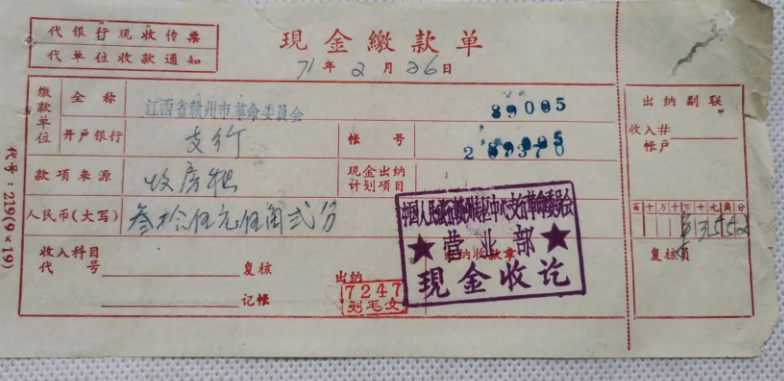 代银行现收传票
代单位收款通知
现金缴款单
71年2月26日
缴款单位
全称
江西省赣州市革命委员会
89005
开户银行
支行
帐号
款项来源
收房租
现金出纳计划项目
人民币(大写)
叁拾伍元伍角贰分
收入科目
代号
复核
记帐
出纳
7247
中国人民银行赣州市中心支行革命委员会
★营业部★
现金收讫
收款章
出纳副联
收入#
帐户
百十万千百十元角分
复核员
代号:219(9×19)